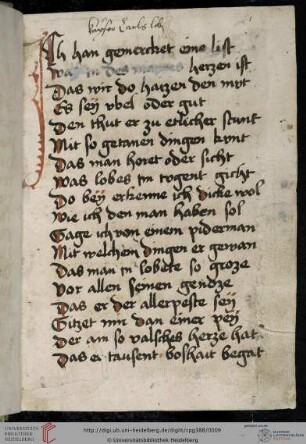 Ich han gemerchet eine list
Was in des mannes herzen ist
Das wir do haizen den mut
Es sey vbel oder gut
Den thut er zu etlicher stunt
Mit so getanen dingen kunt
Das man horet oder sicht
Was lobes jn togent gicht
Do bey erkenne ich dicke wol
Wie ich den man haben sol
Sage ich von einem piderman
Mit welchem dingen er gewan
Das man jn lobete so groze
Vor allen seinen genoze
Das er der allerpeste sey
Sitzet nim dan einer pey
Der ain so valsches herze hat
Das er tausent boshait begat
UNIVERSITÄTS-
BIBLIOTHEK
HEIDELBERG
http://digi.ub.uni-heidelberg.de/diglit/cpg388/0009
© Universitätsbibliothek Heidelberg